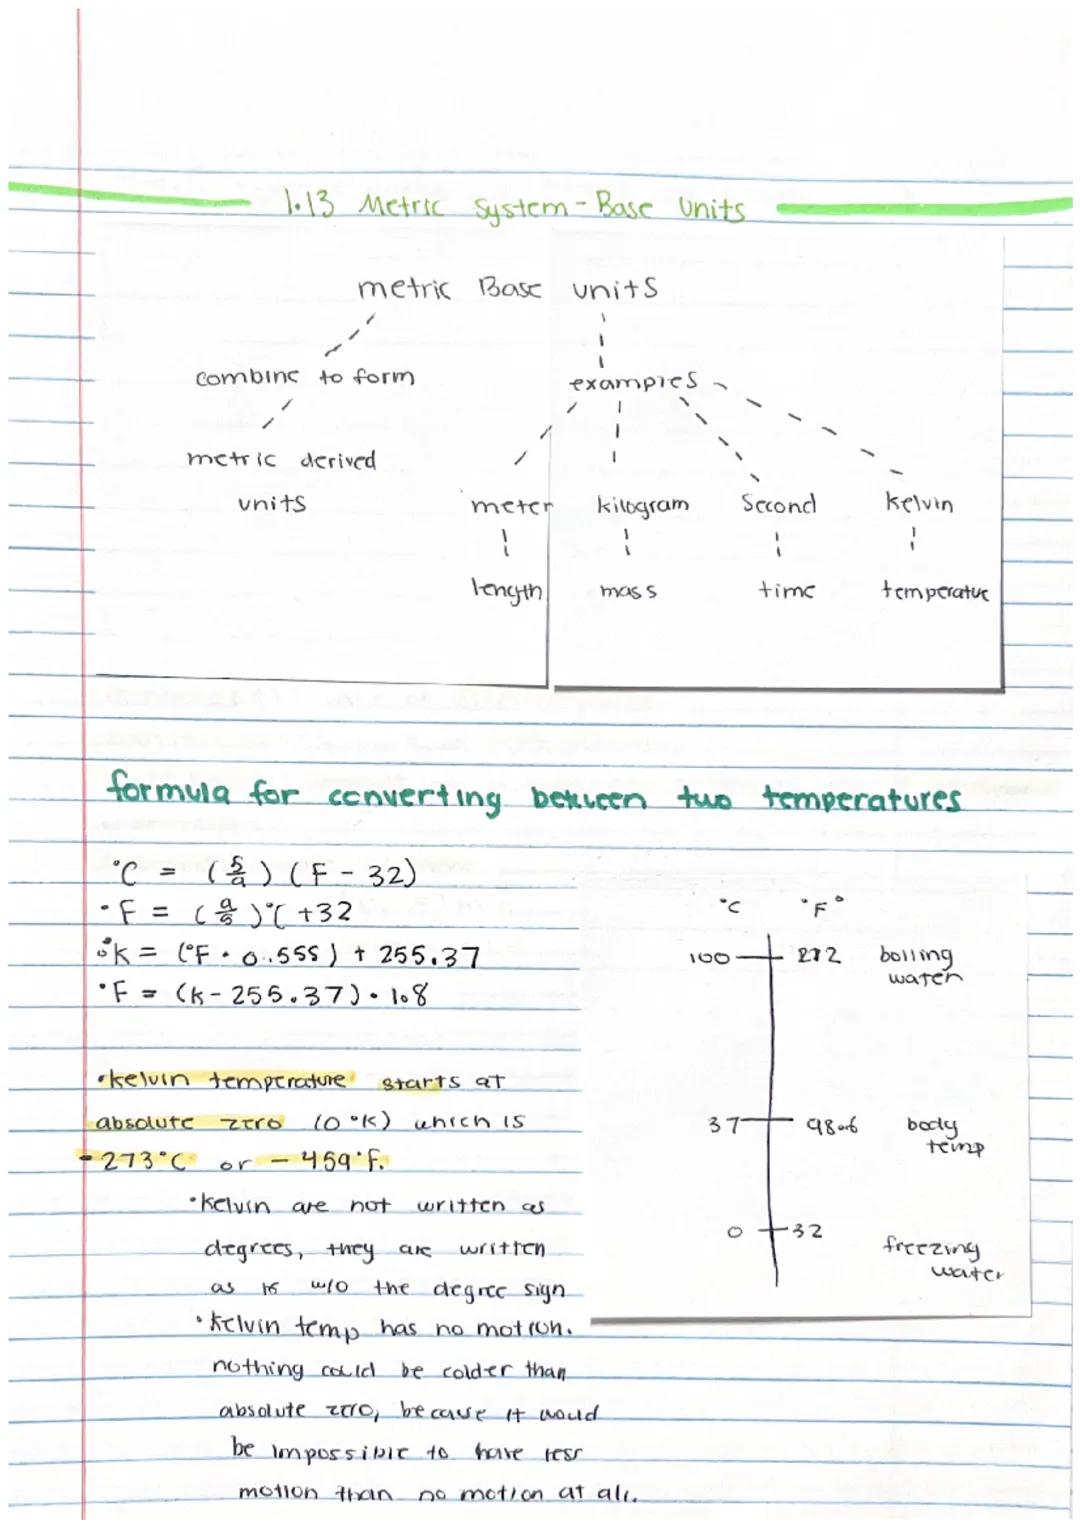 1.13 Metric System - Base Units
metric Base units
combine to form
examples
metric derived
units
meter kilogram Second Kelvin
length mass time temperatue
formula for converting between two temperatures
°C = (5/9) (F - 32)
°F = (9/5)°C +32
°K = (°F • 0.555) + 255.37
°F = (K - 255.37) • 1.8
°C °F°
100 212 boiling
water
37 98.6 body
temp
0 32 freezing
water
•kelvin temperature starts at
absolute zero (0°K) which is
-273°C or -459°F.
•Kelvin are not written as
degrees, they are written
as is w/o the degree sign
•Kelvin temp has no motion.
nothing could be colder than
absolute zero, because it would
be impossible to have less
motion than no motion at all.